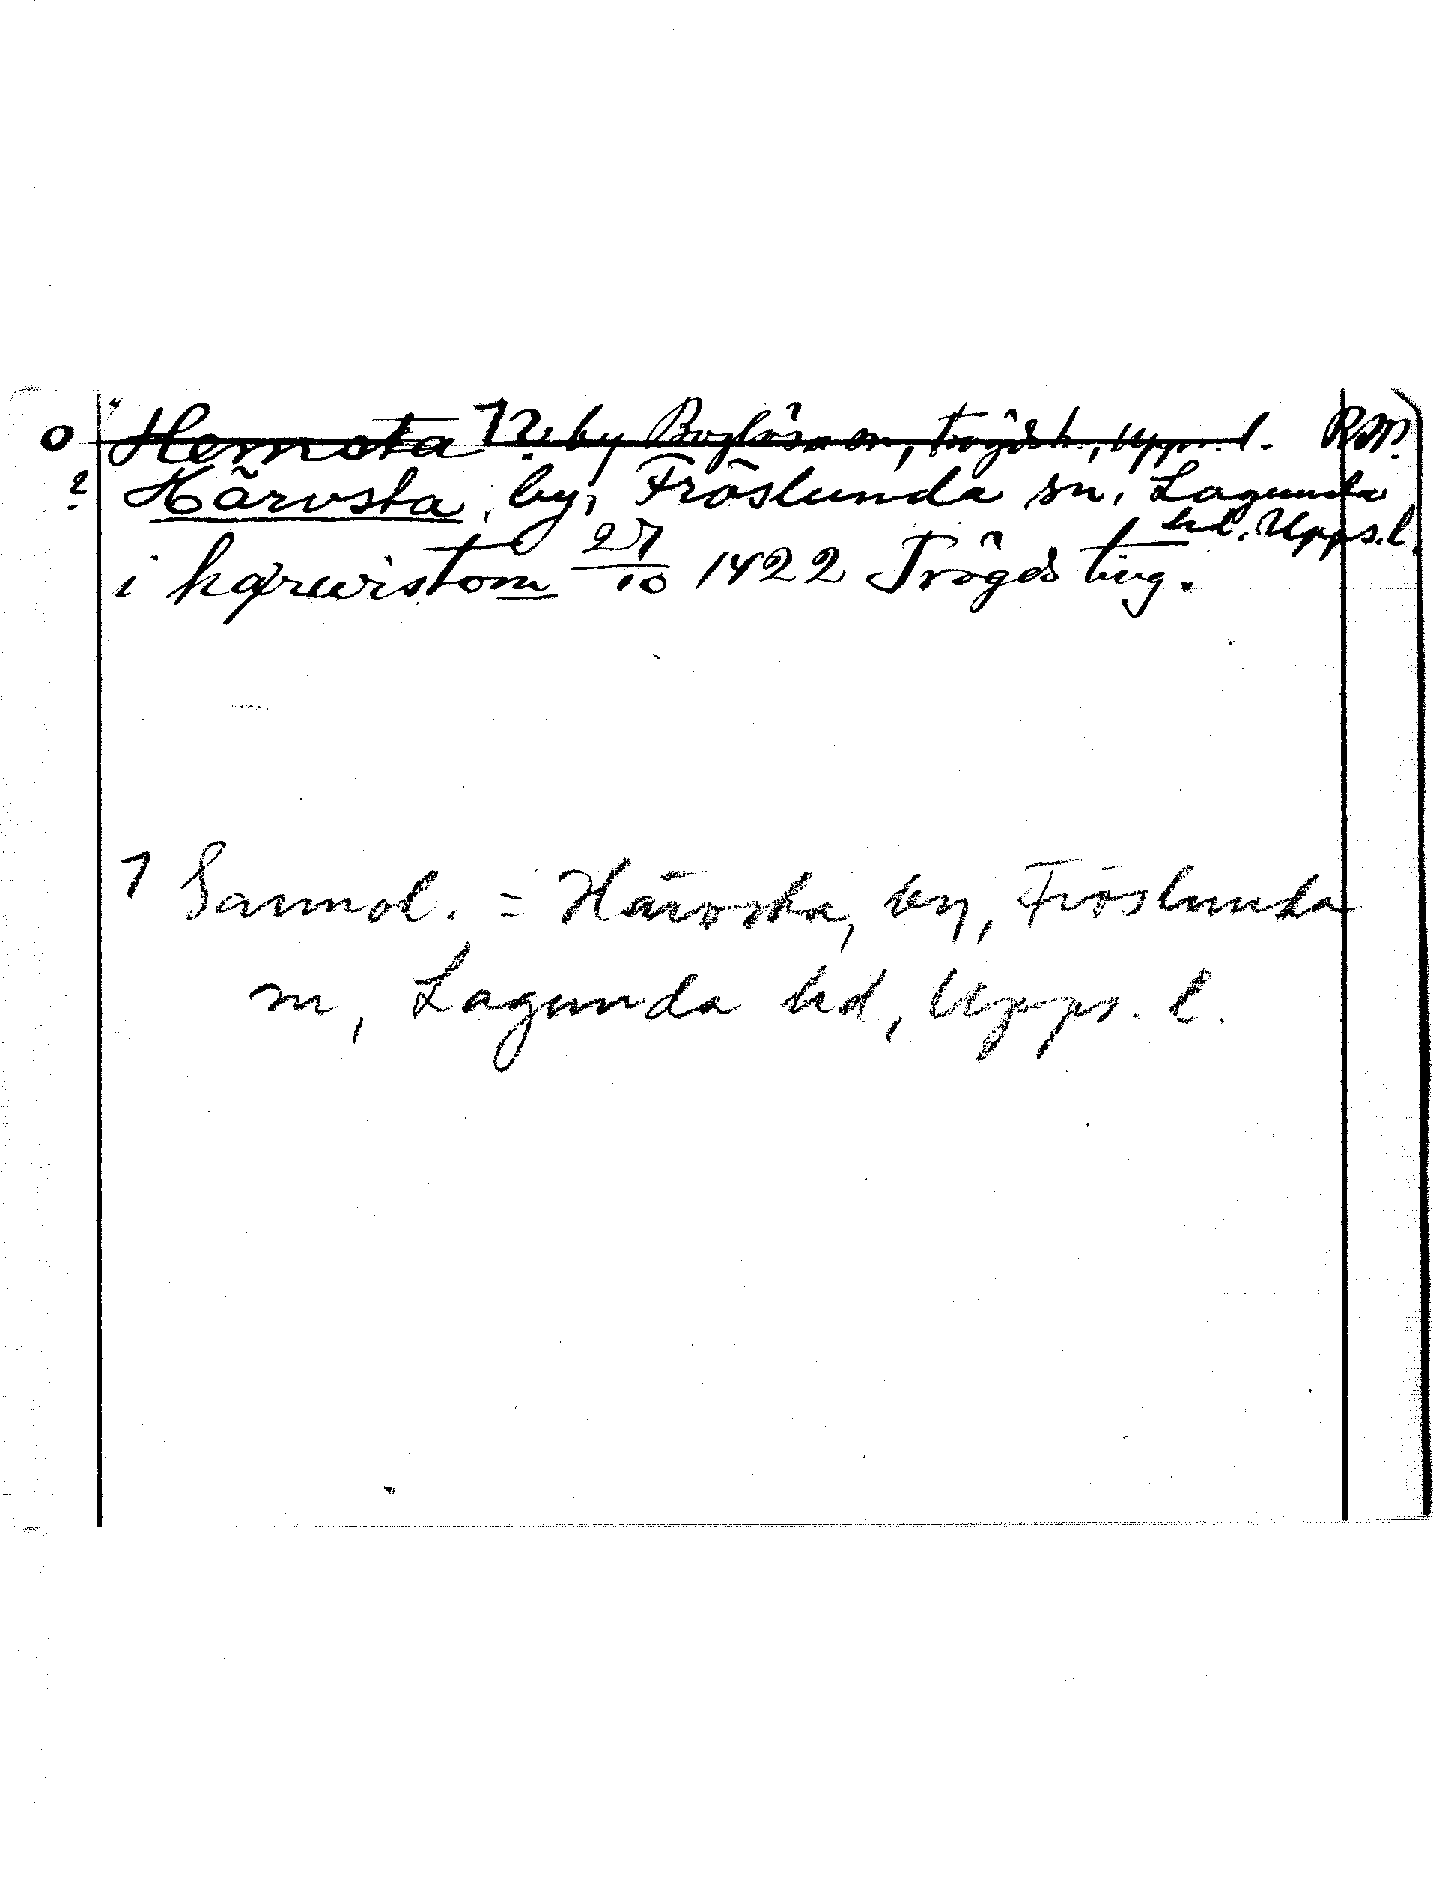 O Hemsta 1?, by Boglösa sn, Trögds h., Upps. l. RMP.
? Härvsta, by, Fröslunda sn, Lagunda
hd. Upps. l.
i hærwistom 27/10 1422 Trögds ting.
1 Sannol. = Härvsta, by, Fröslunda
sn, Lagunda hd, Upps. l.